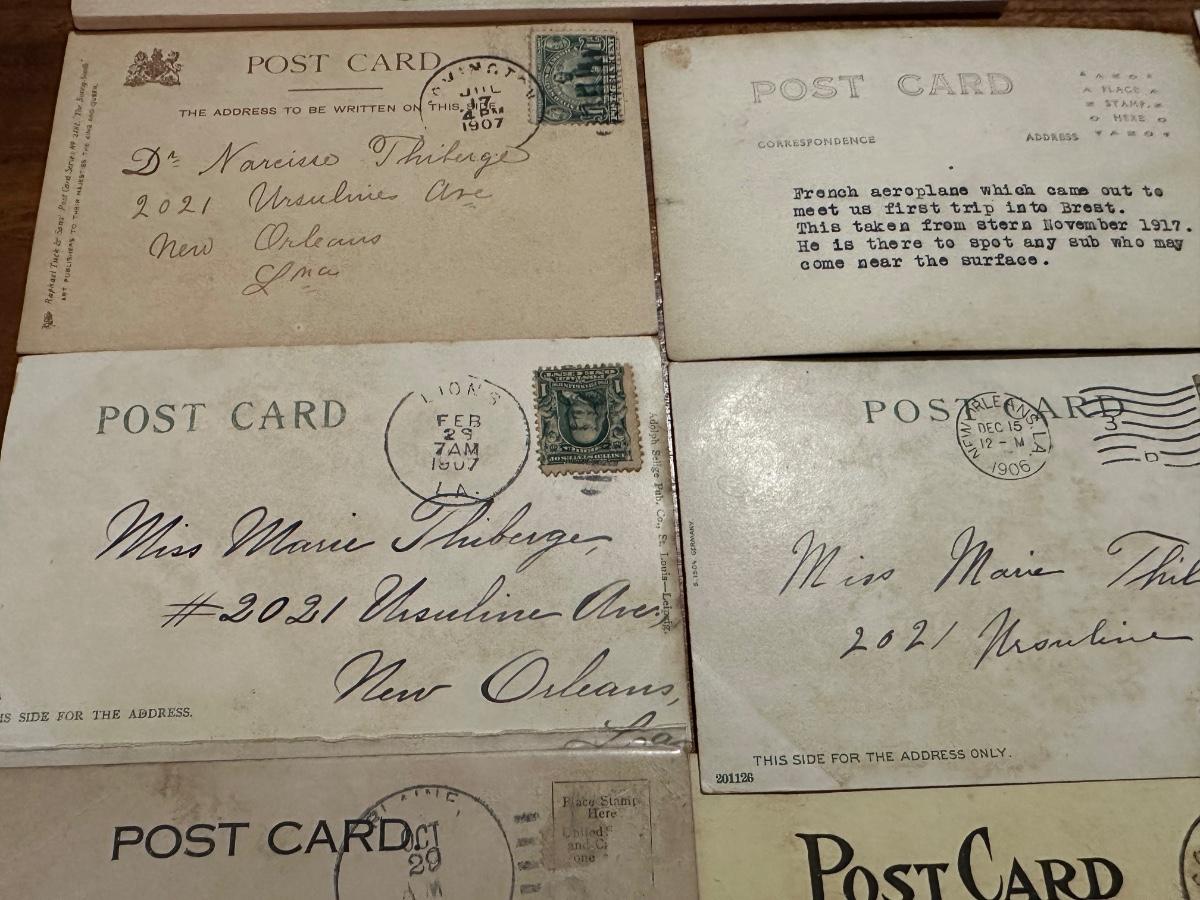 POST CARD
THE ADDRESS TO BE WRITTEN ON THIS SIDE
JUL
17
4 PM
1907
Raphael Tuck & Sons' Post Card Series No
ART PUBLISHERS TO THEIR MAJESTIES THE KING AND QUEEN.
Dr. Narcisse Thiberge
2021 Ursulines Ave
New Orleans
Lna
POST CARD
PLACE
STAMP
HERE
CORRESPONDENCE
ADDRESS
French aeroplane which came out to
meet us first trip into Brest.
This taken from stern November 1917.
He is there to spot any sub who may
come near the surface.
POST CARD
LIONS
FEB
29
7AM
1907
LA.
1
Adolph Selige Pub. Co., St. Louis—Leipzig.
Miss Marie Thiberge,
#2021 Ursuline Ave,
New Orleans,
La
IS SIDE FOR THE ADDRESS.
POST CARD
NEW ORLEANS, LA.
DEC 15
12 - M
1906
3
D
GERMANY.
Miss Marie Thi
2021 Ursuline
THIS SIDE FOR THE ADDRESS ONLY.
201126
POST CARD.
OCT
29
AM
Place Stamp
Here
United
and
one
POST CARD